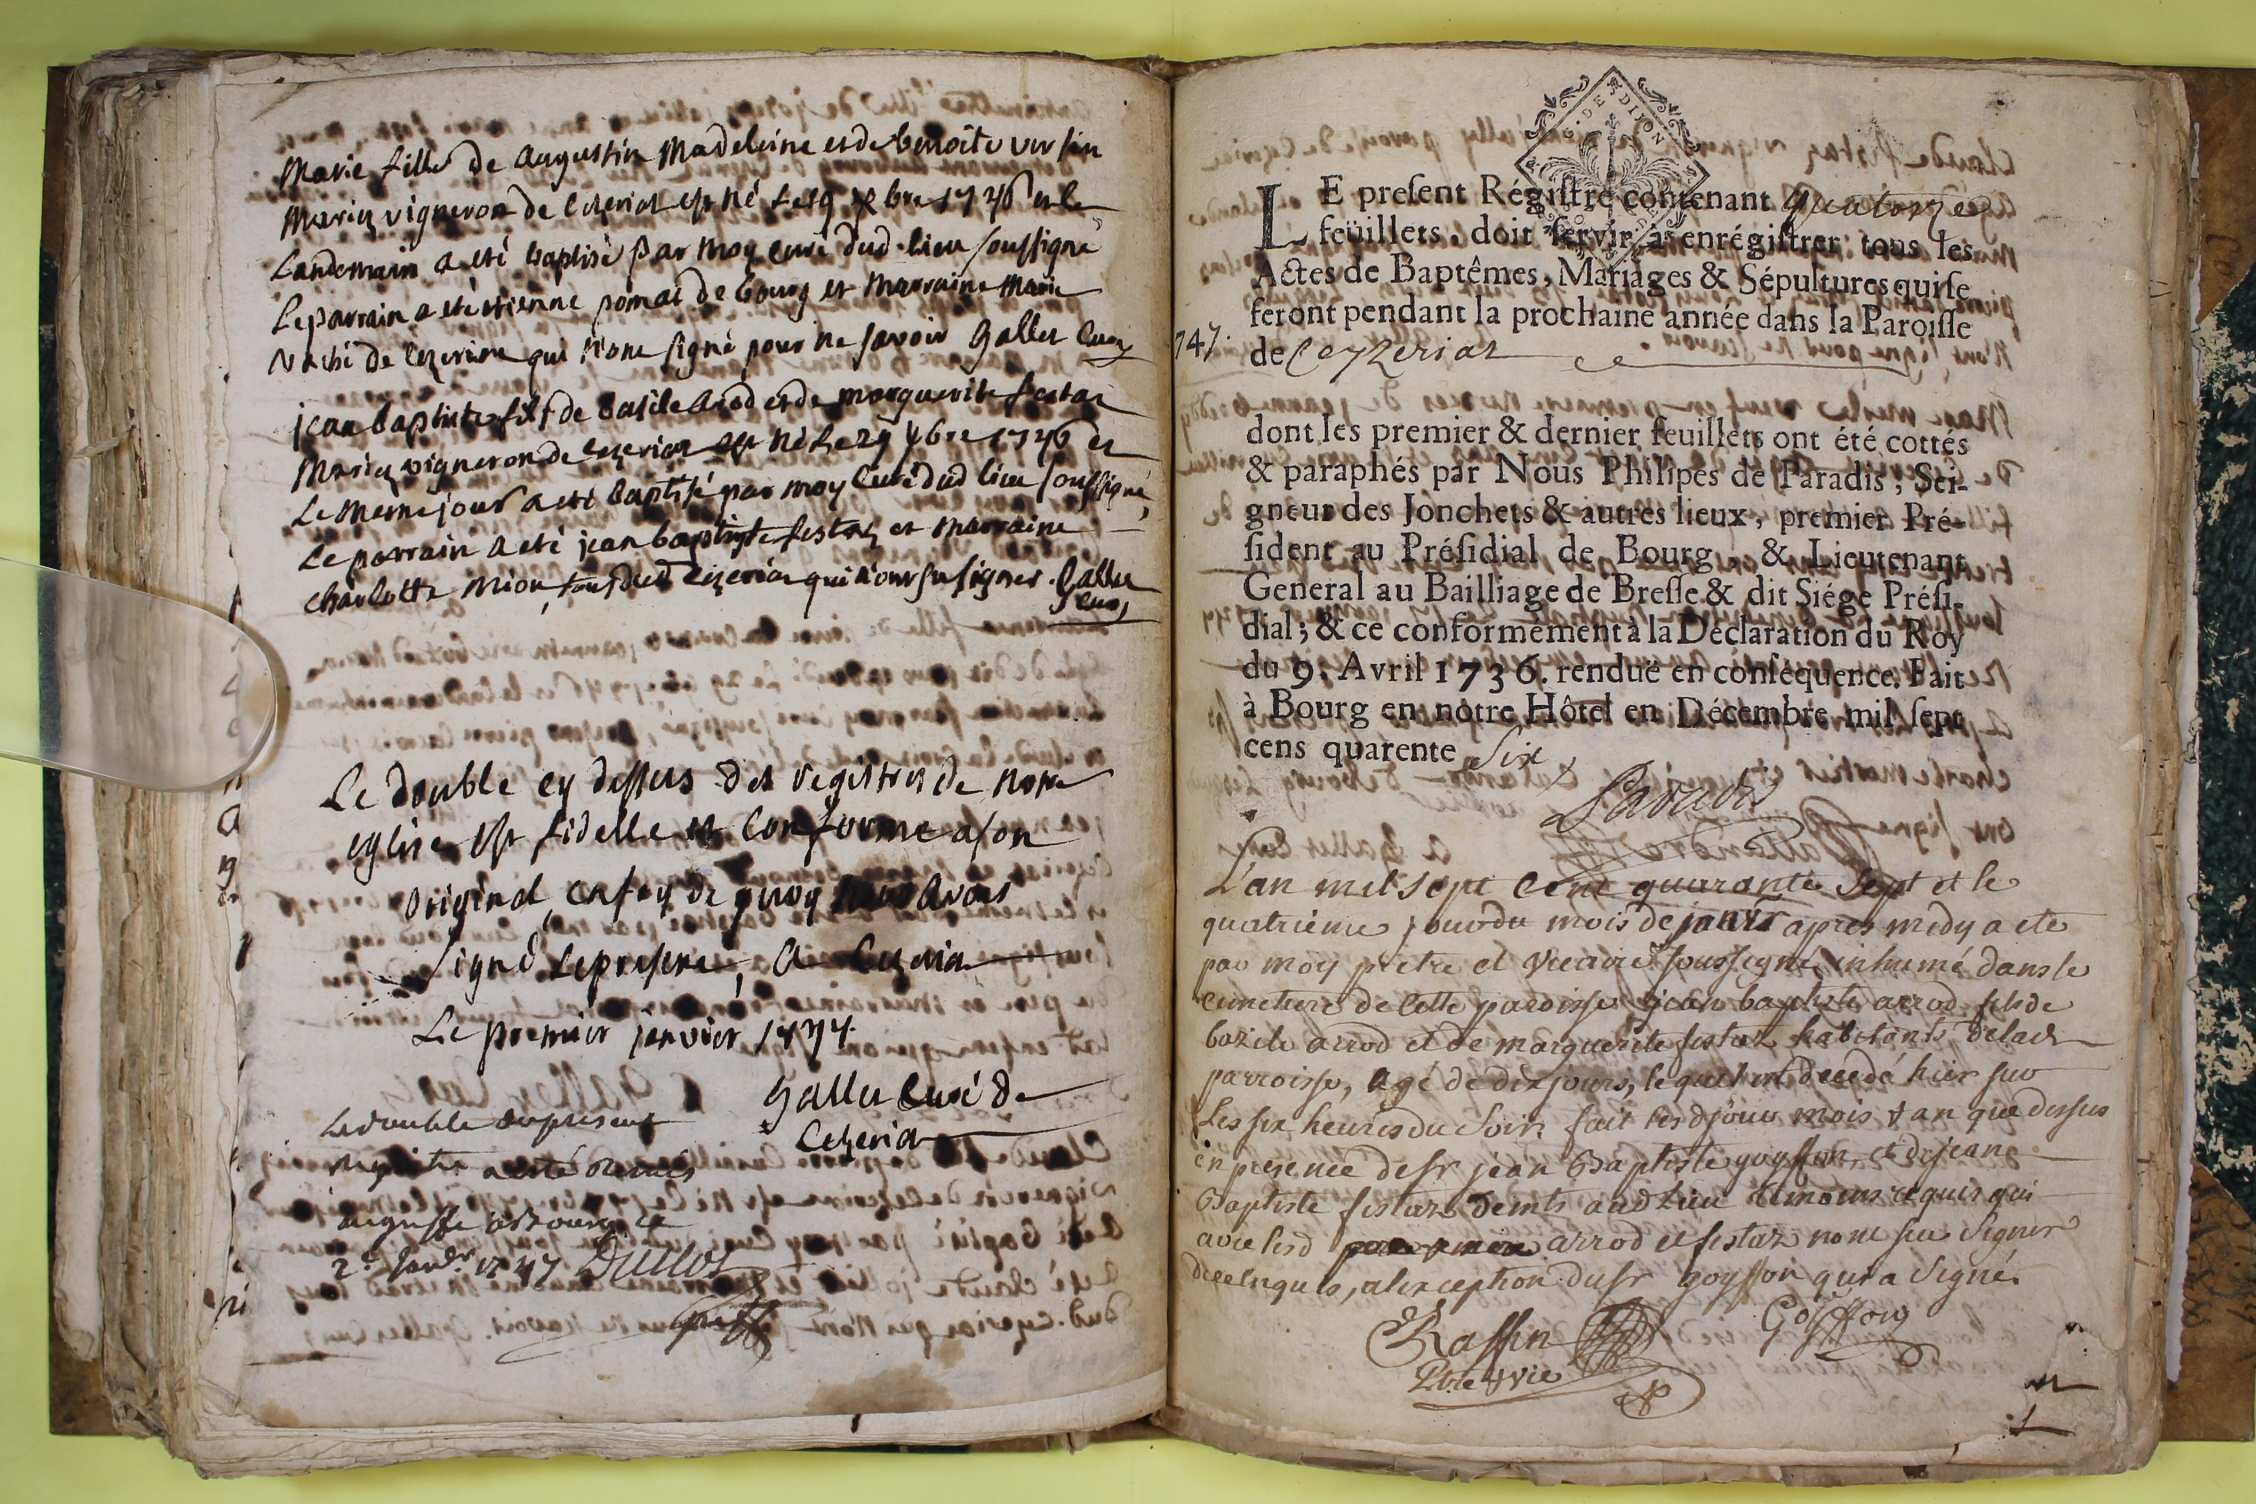 Marie fille de Augustin Madeleine et de benoite
Mariez vigneron de Cezeriat est né Le 29 xbre 1746 et le
Landemain a eté baptisé par moy curé dud. lieu soussigné
Le parrain a eté etienne pomat de bourg et Marraine Marie
de Cezeriat qui n'ont signé pour ne savoir Gallet Curé
jean baptiste fils de basile arod et de marguerite festaz
Mariez vigneron de Cezeriat est né Le 29 xbre 1746 et
Le meme jour a eté baptisé par moy Curé dud lieu soussigné
Le parrain a eté jean baptiste festaz et marraine
charlotte Mion, tous dud Cezeriat qui n'ont su signer. Gallet
Curé
Le double cy dessus des registres de notre
eglise est fidelle et conforme a son
original, en foy de quoy nous avons
signé Le present, A Cezeriat
Le premier janvier 1747.
Gallet Curé de
Cezeriat
Le double du present
registre a esté remis
au greffe a bourg ce
2e. Janvr. 1747 Duclos
LE present Régistre contenant quatorze
feüillets, doit servir à enrégistrer tous les
Actes de Baptêmes, Mariages & Sépultures qui se
feront pendant la prochaine année dans la Paroisse
747.
de Ceyzeriat
dont les premier & dernier feuillets ont été cottés
& paraphés par Nous Philipes de Paradis, Sei-
gneur des Jonchets & autres lieux, premier Pré-
sident au Présidial de Bourg, & Lieutenant
General au Bailliage de Bresse & dit Siége Prési-
dial; & ce conformement à la Déclaration du Roy
du 9. Avril 1736. renduë en consequence. Fait
à Bourg en nôtre Hôtel en Décembre mil sept
cens quarente Six
Paradis
L'an mil sept cent quarante sept et le
quatrieme jour du mois de janvr apres midy a eté
par moy pretre et vicaire soussigné inhumé dans le
cimetiere de cette paroisse jean baptiste arrod fils de
bazile arrod et de marguerite festaz habitants de lad
parroisse, agé de dix jours, lequel est decedé hier sur
Les six heures du soir fait lesd jour mois & an que dessus
en presence de sr jean Baptiste goyffon et de jean
Baptiste festaz demts aud Lieu temoins requis qui
avec lesd arrod et festaz n'ont sceu signer
de ce enquis, a l'exception du sr goyffon qui a signé.
Raffin
Goiffon
Ptre & vic